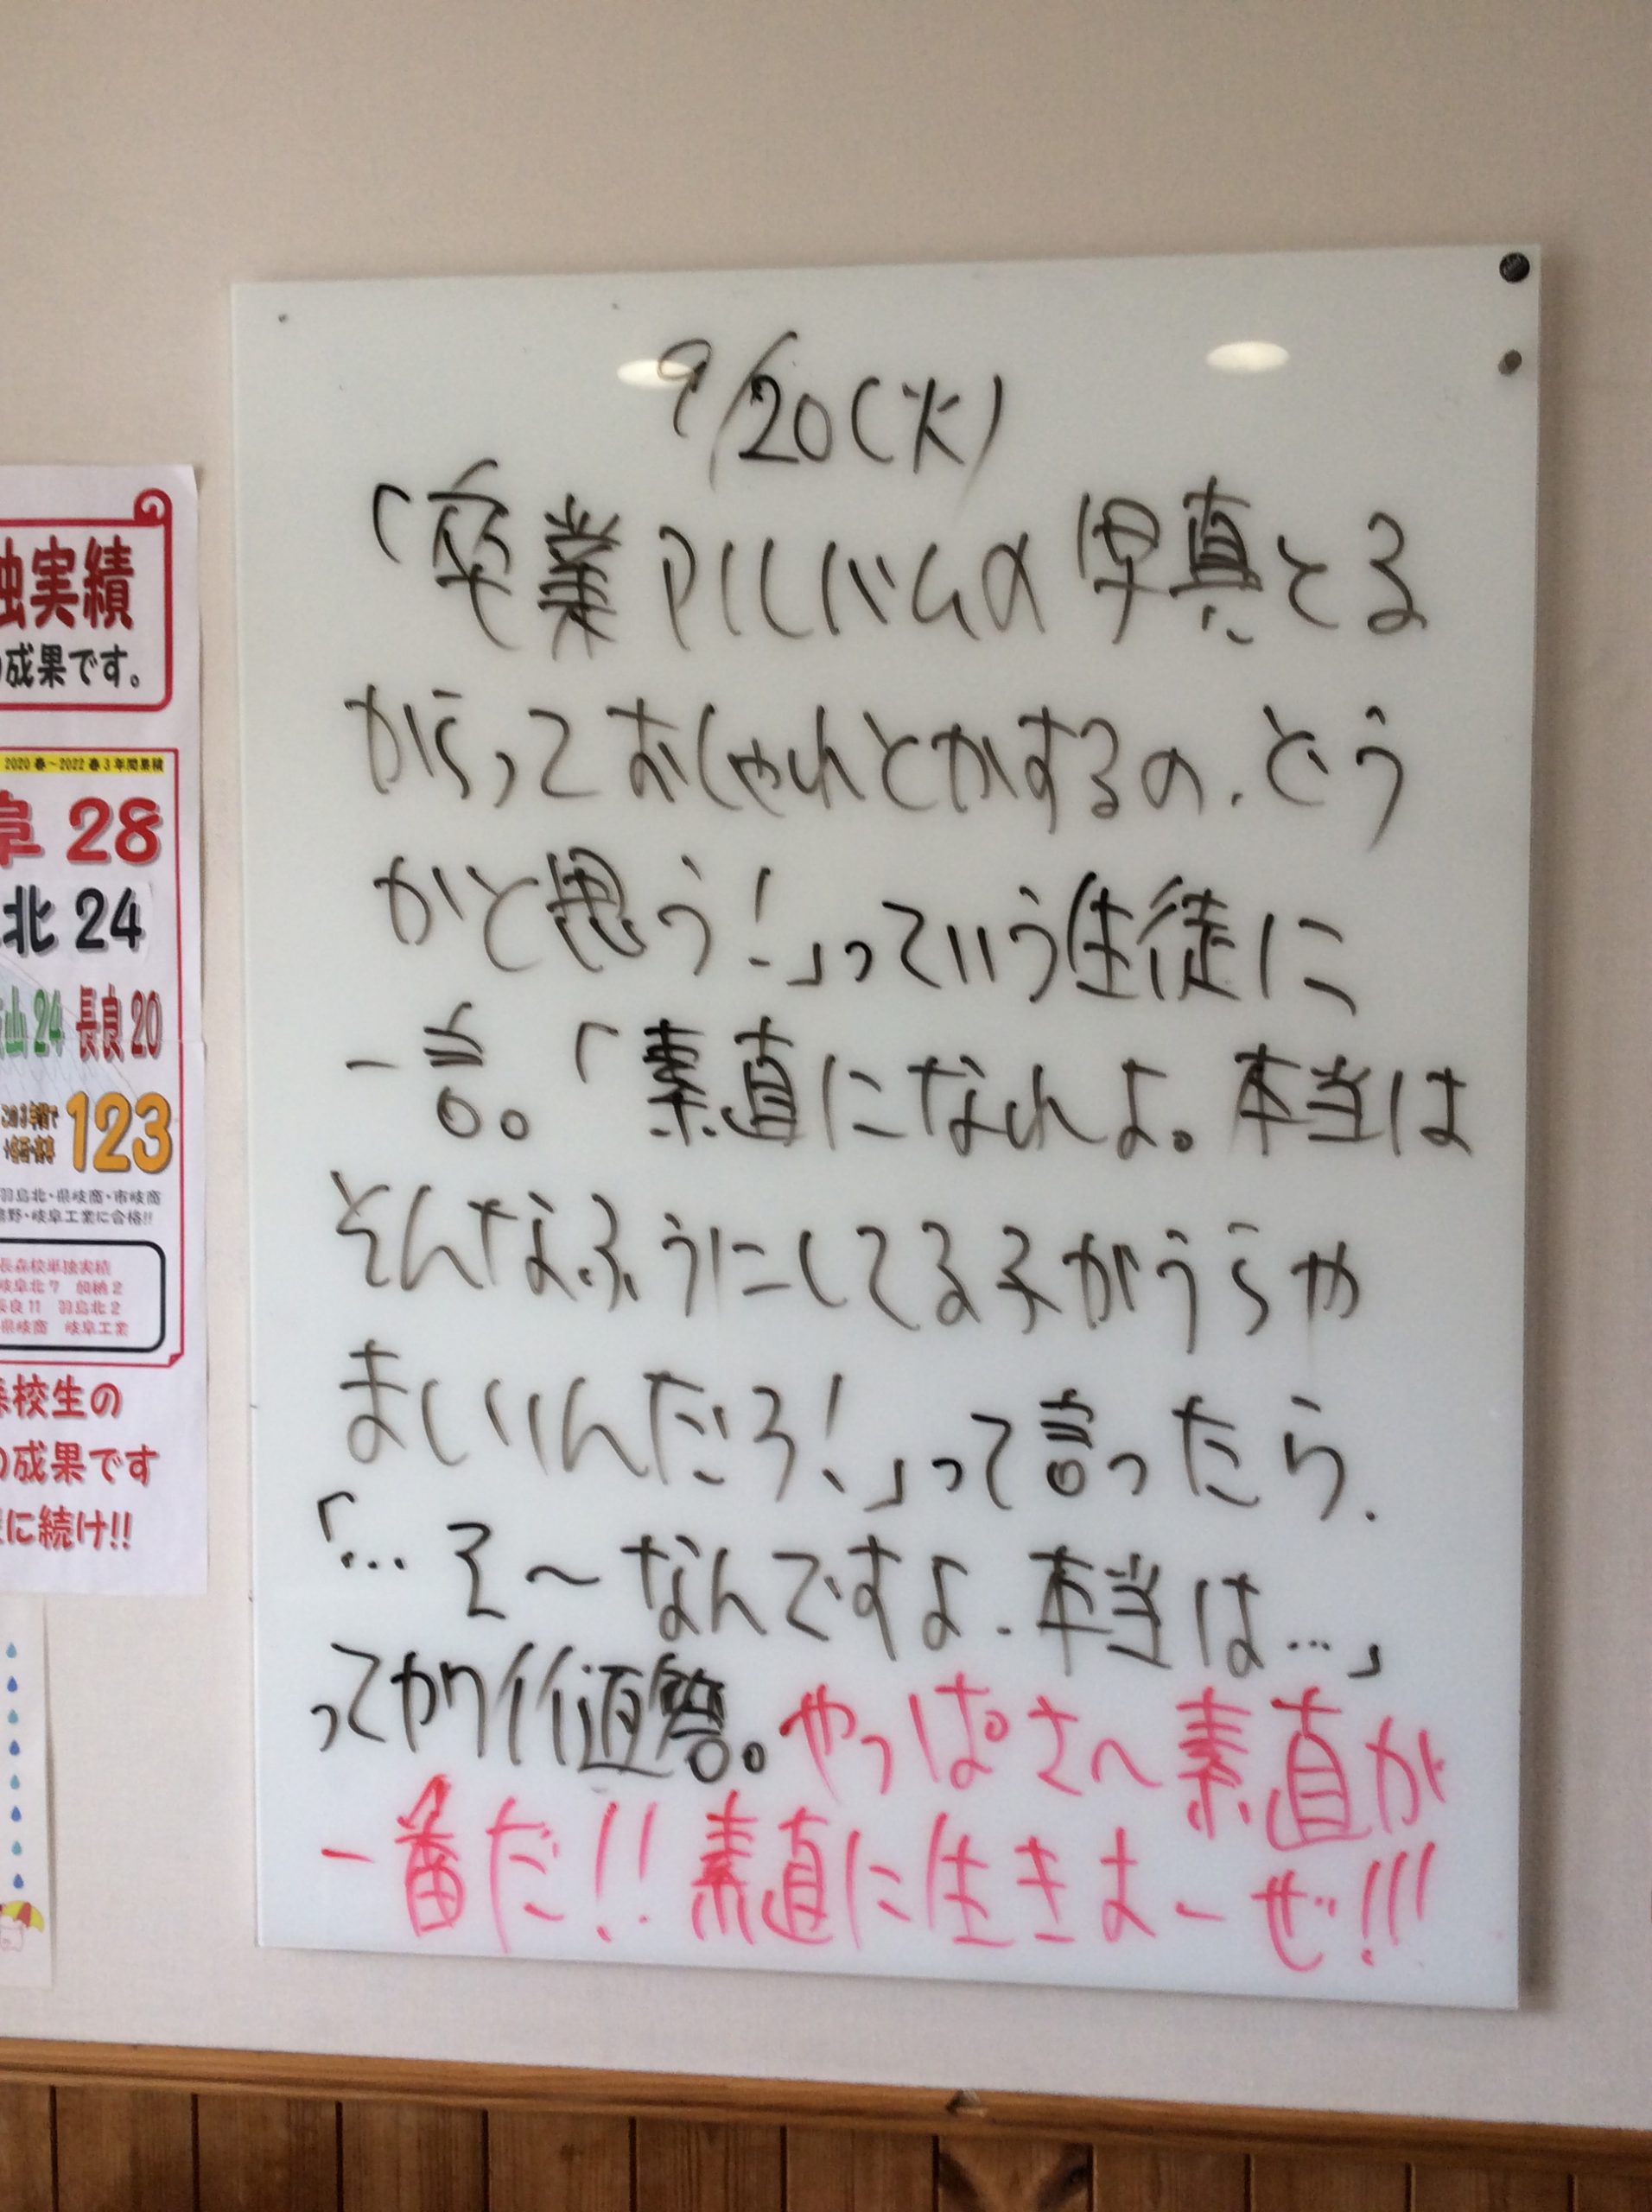 9/20(火)
「卒業アルバムの写真とる
からっておしゃれとかするの、どう
かと思う!」っていう生徒に
一言。「素直になれよ。本当は
そんなふうにしてる子がうらや
ましいんだろ!」って言ったら、
「…そ〜なんですよ、本当は…」
ってかわいい返答。やっぱさ〜素直が
一番だ!!素直に生きよーぜ!!!
実績
成果です。
2020春〜2022春3年間累積
阜 28
北 24
山 24 長良 20
123
羽島北・県岐商・市岐商
野・岐阜工業に合格!!
長森校単独実績
岐阜北7 加納2
長良11 羽島北2
県岐商 岐阜工業
校生の
成果です
に続け!!